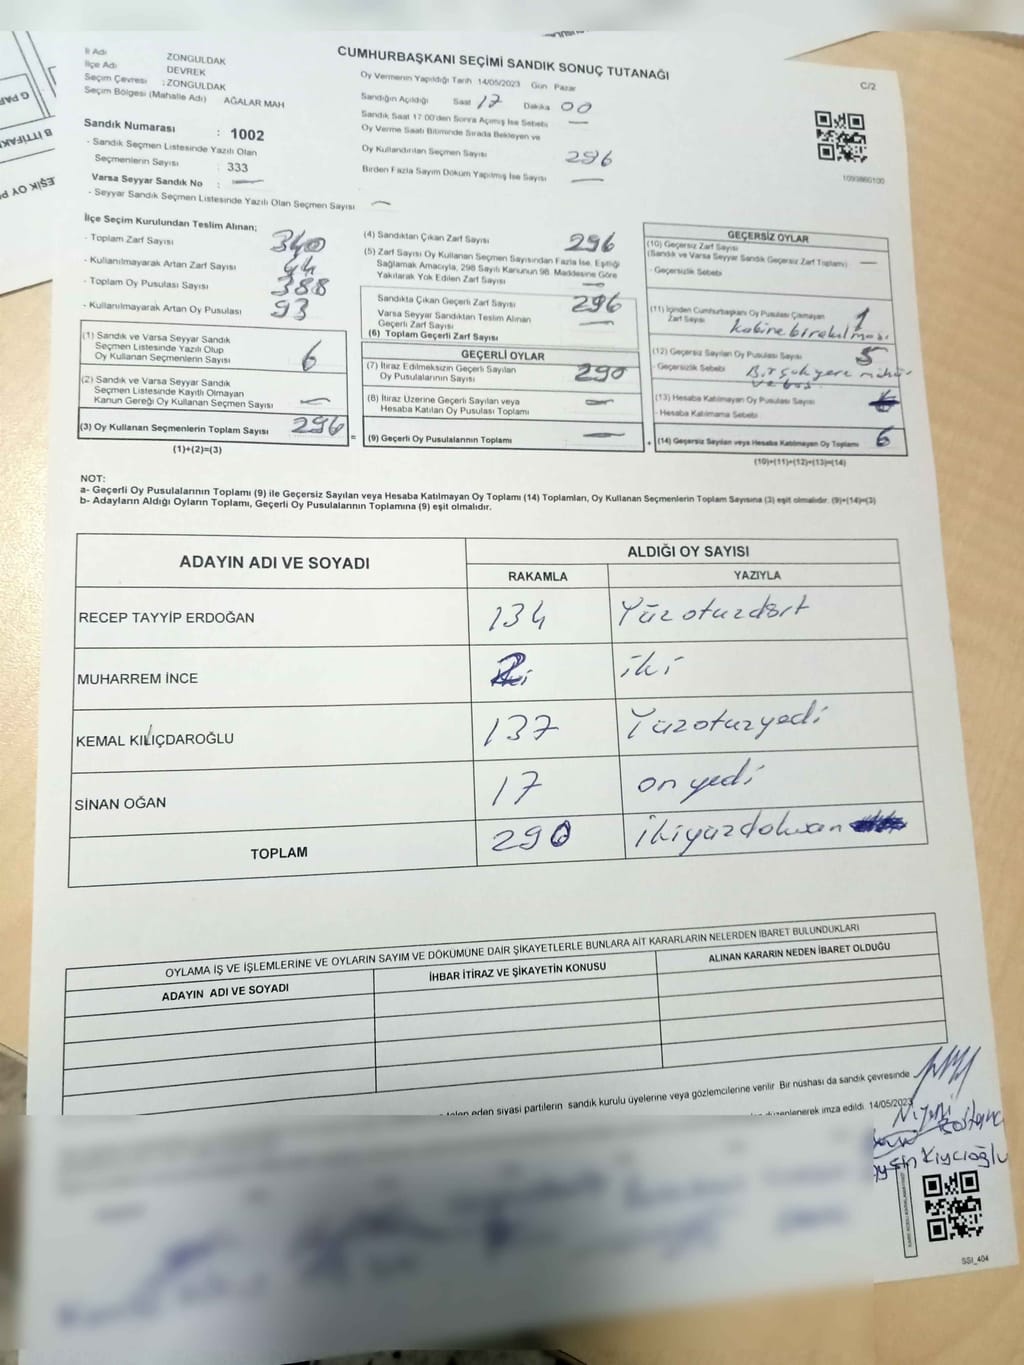 CUMHURBAŞKANI SEÇİMİ SANDIK SONUÇ TUTANAĞI
C/2
İl Adı ZONGULDAK
İlçe Adı DEVREK
Seçim Çevresi : ZONGULDAK
Seçim Bölgesi (Mahalle Adı) AĞALAR MAH
Sandık Numarası : 1002
- Sandık Seçmen Listesinde Yazılı Olan
Seçmenlerin Sayısı : 333
Varsa Seyyar Sandık No : —
- Seyyar Sandık Seçmen Listesinde Yazılı Olan Seçmen Sayısı —
Oy Vermenin Yapıldığı Tarih 14/05/2023 Gün Pazar
Sandığın Açıldığı Saat 17 Dakika 00
Sandık Saat 17:00'den Sonra Açılmış İse Sebebi —
Oy Verme Saati Bitiminde Sırada Bekleyen ve
Oy Kullandırılan Seçmen Sayısı 296
Birden Fazla Sayım Döküm Yapılmış İse Sayısı —
1093860100
İlçe Seçim Kurulundan Teslim Alınan;
- Toplam Zarf Sayısı 340
- Kullanılmayarak Artan Zarf Sayısı 44
- Toplam Oy Pusulası Sayısı 388
- Kullanılmayarak Artan Oy Pusulası 93
(1) Sandık ve Varsa Seyyar Sandık
Seçmen Listesinde Yazılı Olup
Oy Kullanan Seçmenlerin Sayısı 6
(2) Sandık ve Varsa Seyyar Sandık
Seçmen Listesinde Kayıtlı Olmayan
Kanun Gereği Oy Kullanan Seçmen Sayısı —
(3) Oy Kullanan Seçmenlerin Toplam Sayısı 296
(1)+(2)=(3)
(4) Sandıktan Çıkan Zarf Sayısı 296
(5) Zarf Sayısı Oy Kullanan Seçmen Sayısından Fazla İse, Eşitliği
Sağlamak Amacıyla, 298 Sayılı Kanunun 98. Maddesine Göre
Yakılarak Yok Edilen Zarf Sayısı —
Sandıkta Çıkan Geçerli Zarf Sayısı 296
Varsa Seyyar Sandıktan Teslim Alınan
Geçerli Zarf Sayısı —
(6) Toplam Geçerli Zarf Sayısı
GEÇERLİ OYLAR
(7) İtiraz Edilmeksizin Geçerli Sayılan
Oy Pusulalarının Sayısı 290
(8) İtiraz Üzerine Geçerli Sayılan veya
Hesaba Katılan Oy Pusulası Toplamı —
= (9) Geçerli Oy Pusulalarının Toplamı —
GEÇERSİZ OYLAR
(10) Geçersiz Zarf Sayısı
(Sandık ve Varsa Seyyar Sandık Geçersiz Zarf Toplamı) —
- Geçersizlik Sebebi
(11) İçinden Cumhurbaşkanı Oy Pusulası Çıkmayan
Zarf Sayısı 1
kabine bırakılması
(12) Geçersiz Sayılan Oy Pusulası Sayısı 5
- Geçersizlik Sebebi Birçok yere mühür
ve boş
(13) Hesaba Katılmayan Oy Pusulası Sayısı
- Hesaba Katılmama Sebebi
+ (14) Geçersiz Sayılan veya Hesaba Katılmayan Oy Toplamı 6
(10)+(11)+(12)+(13)=(14)
NOT:
a- Geçerli Oy Pusulalarının Toplamı (9) ile Geçersiz Sayılan veya Hesaba Katılmayan Oy Toplamı (14) Toplamları, Oy Kullanan Seçmenlerin Toplam Sayısına (3) eşit olmalıdır. (9)+(14)=(3)
b- Adayların Aldığı Oyların Toplamı, Geçerli Oy Pusulalarının Toplamına (9) eşit olmalıdır.
ADAYIN ADI VE SOYADI ALDIĞI OY SAYISI
RAKAMLA YAZIYLA
RECEP TAYYİP ERDOĞAN 134 Yüzotuzdört
MUHARREM İNCE 2 iki
KEMAL KILIÇDAROĞLU 137 Yüzotuzyedi
SİNAN OĞAN 17 on yedi
TOPLAM 290 ikiyüzdoksan
OYLAMA İŞ VE İŞLEMLERİNE VE OYLARIN SAYIM VE DÖKÜMÜNE DAİR ŞİKAYETLERLE BUNLARA AİT KARARLARIN NELERDEN İBARET BULUNDUKLARI
ADAYIN ADI VE SOYADI İHBAR İTİRAZ VE ŞİKAYETİN KONUSU ALINAN KARARIN NEDEN İBARET OLDUĞU
eden siyasi partilerin sandık kurulu üyelerine veya gözlemcilerine verilir Bir nüshası da sandık çevresinde
düzenlenerek imza edildi. 14/05/2023
Kıycıoğlu
SSI_404